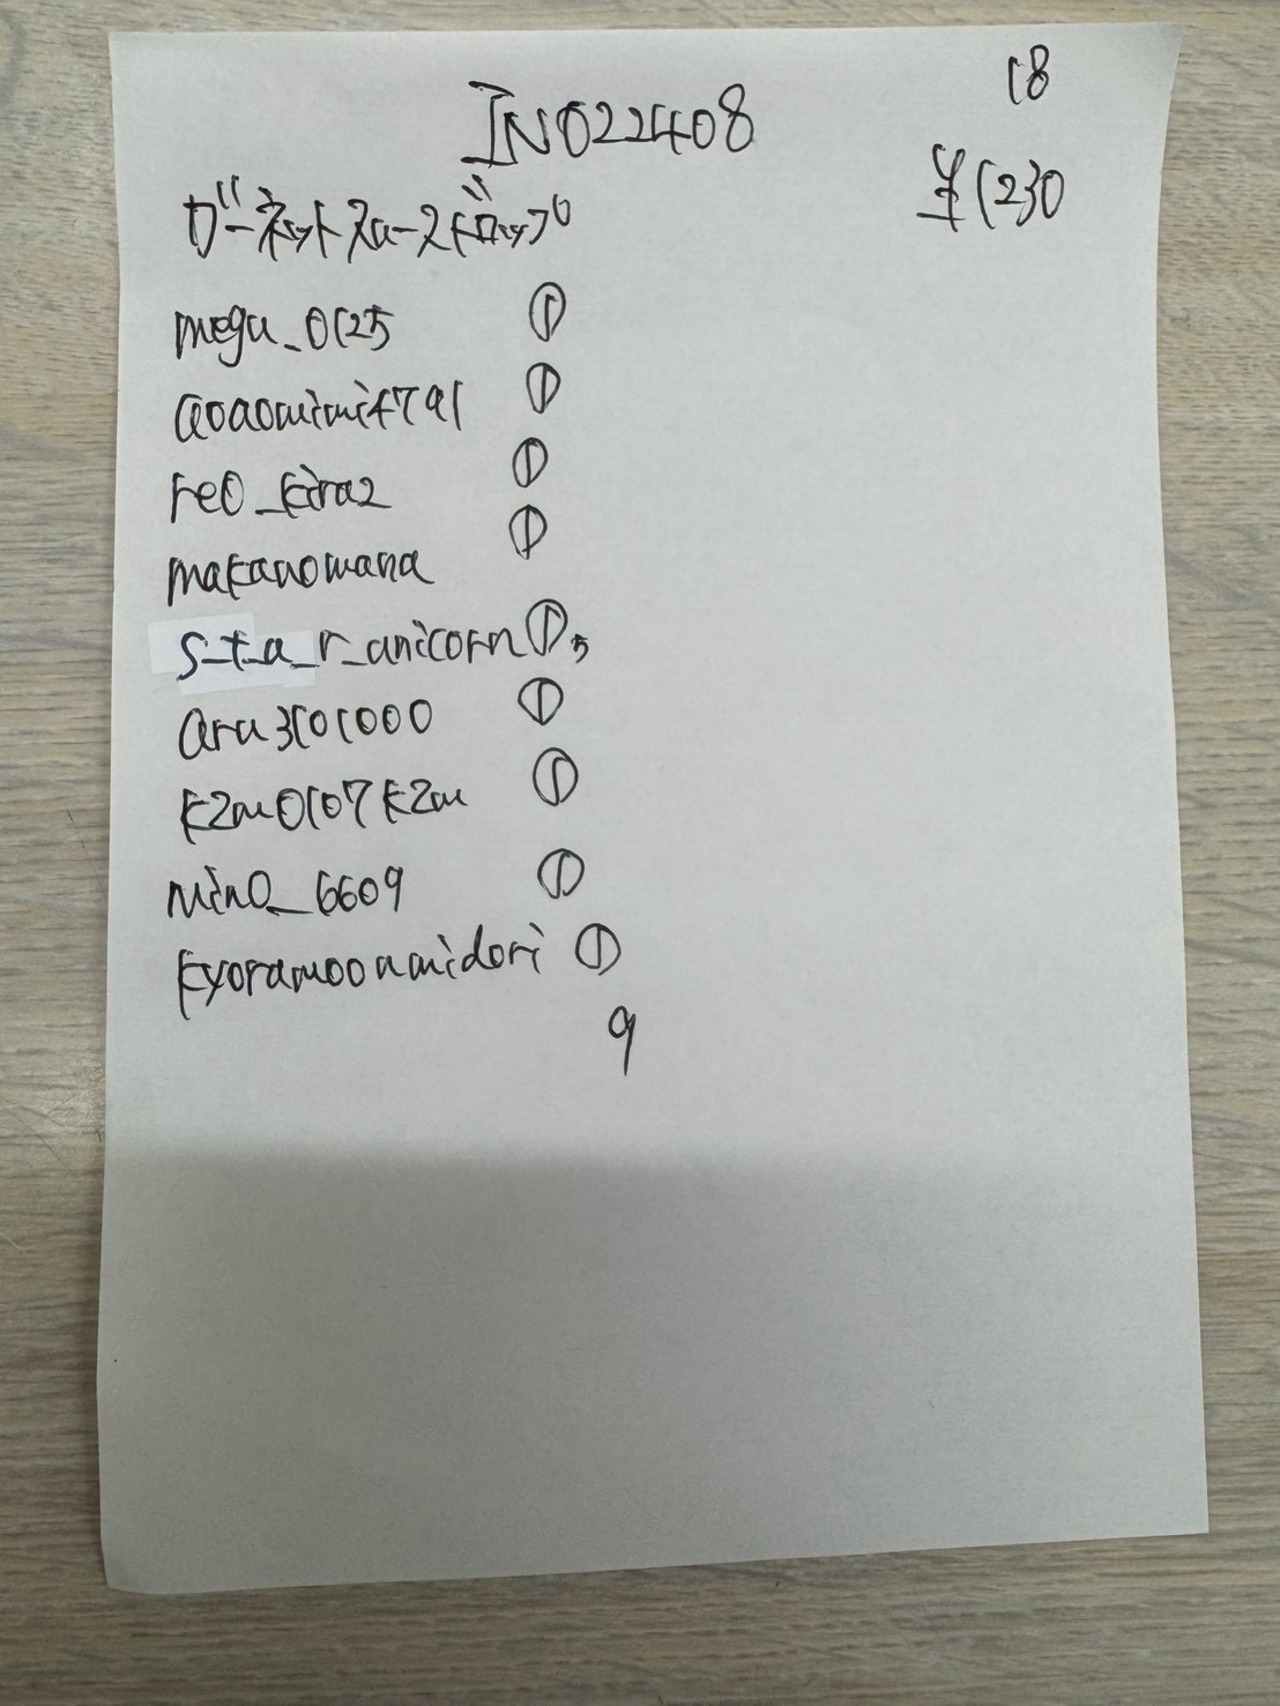 IN022408
18
¥1230
ガーネットスムースドロップ
megu_0125
aoaomimi4791
re0_kira2
makanomana
s_t_a_r_unicorn ① 5
aru3101000
kzm0107kzm
nin0_6609
kyoramoonmidori ①
9